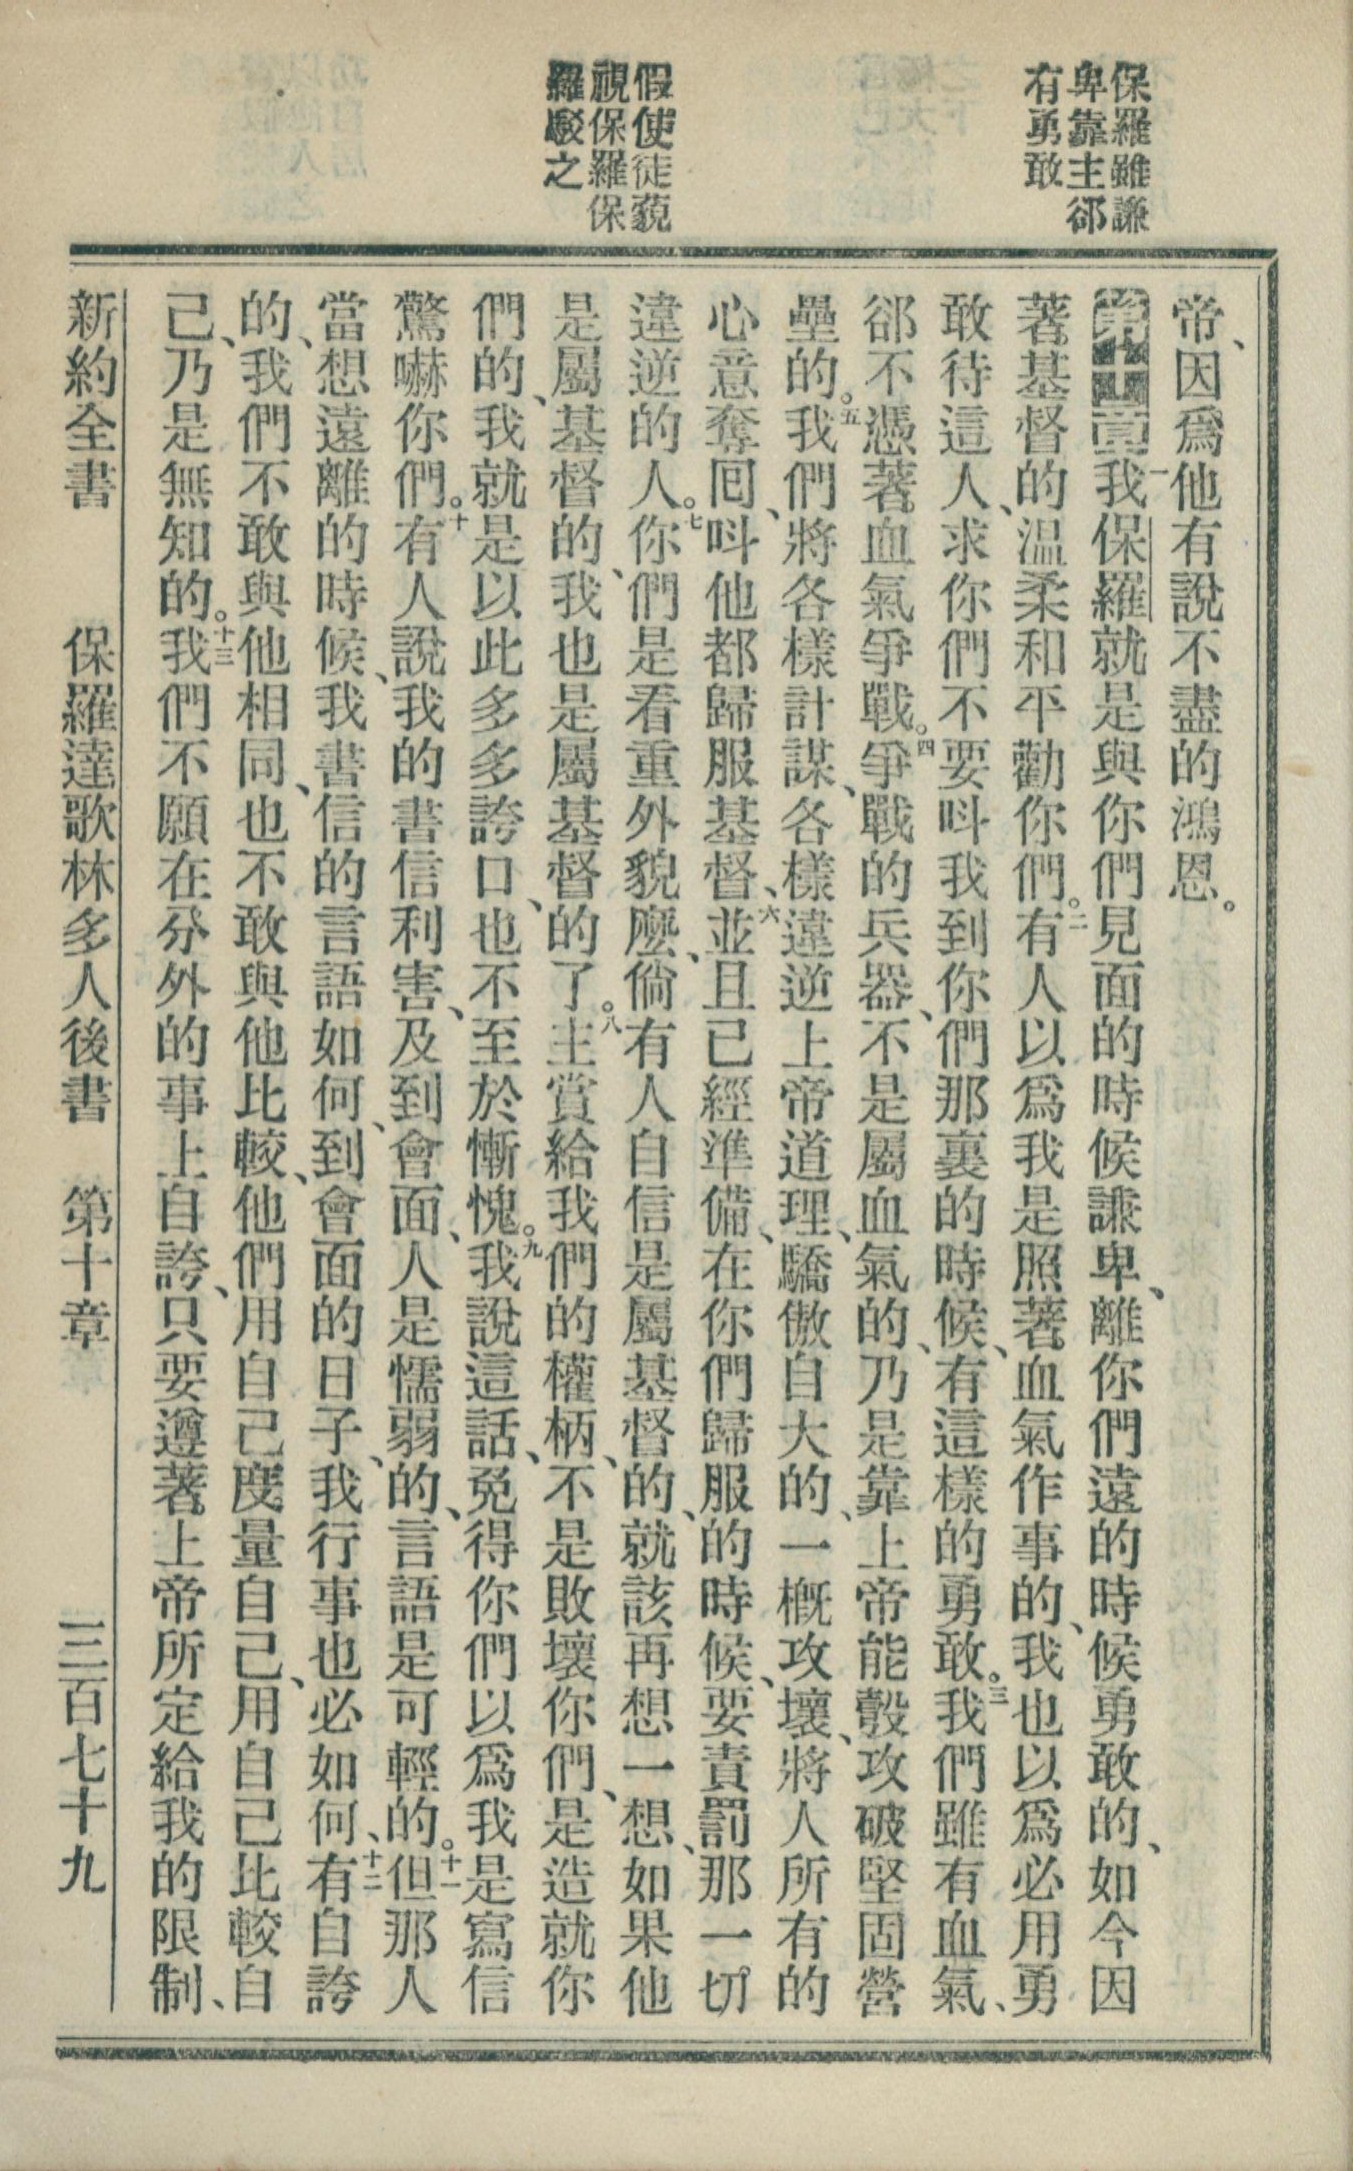 保羅雖謙
卑靠主郤
有勇敢
假使徒藐
視保羅保
羅駁之
帝、因爲他有說不盡的鴻恩。
第十章一我保羅就是與你們見面的時候謙卑、離你們遠的時候勇敢的、如今因
著基督的温柔和平勸你們。二有人以爲我是照著血氣作事的、我也以爲必用勇
敢待這人、求你們不要呌我到你們那裏的時候、有這樣的勇敢。三我們雖有血氣、
郤不憑著血氣爭戰。四爭戰的兵器、不是屬血氣的、乃是靠上帝能彀攻破堅固營
壘的。五我們將各樣計謀、各樣違逆上帝道理、驕傲自大的、一概攻壞、將人所有的
心意奪囘、呌他都歸服基督、六並且已經準備、在你們歸服的時候、要責罰那一切
違逆的人。七你們是看重外貌麽、倘有人自信是屬基督的、就該再想一想、如果他
是屬基督的、我也是屬基督的了。八主賞給我們的權柄、不是敗壞你們、是造就你
們的、我就是以此多多誇口、也不至於慚愧。九我說這話、免得你們以爲我是寫信
驚嚇你們。十有人說我的書信利害、及到會面、人是懦弱的、言語是可輕的。十一但那人
當想遠離的時候、我書信的言語如何、到會面的日子、我行事也必如何、十二有自誇
的、我們不敢與他相同、也不敢與他比較、他們用自己度量自己、用自己比較自
己、乃是無知的。十三我們不願在分外的事上自誇、只要遵著上帝所定給我的限制、
新約全書 保羅達歌林多人後書 第十章 三百七十九